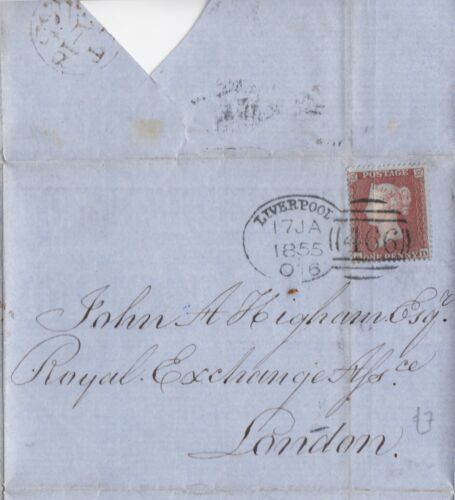 LIVERPOOL
17JA
1855
O16
466
POSTAGE
ONE PENNY
John A Higham Esqr.
Royal Exchange Assce
London.